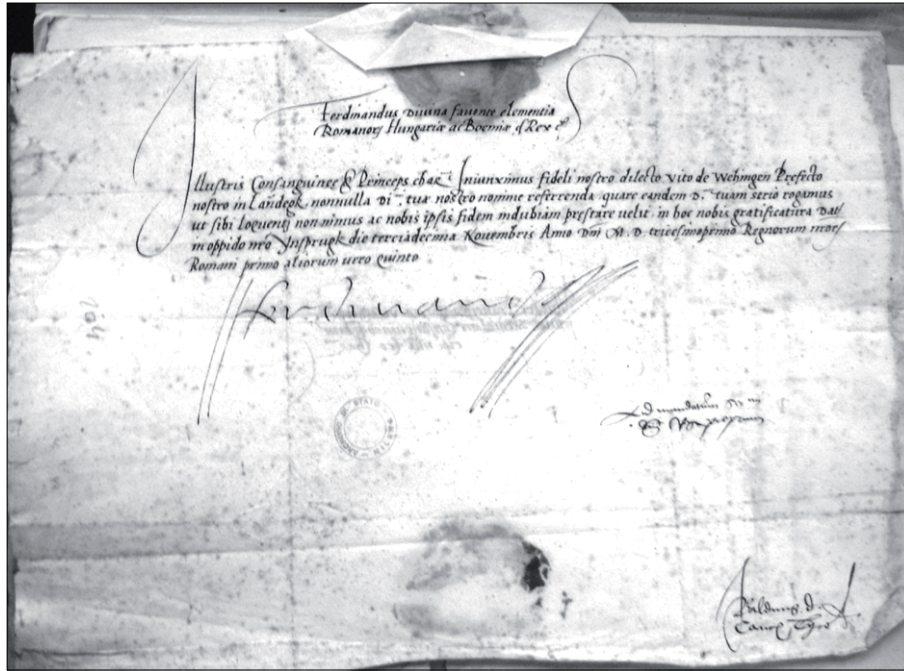 Ferdinandus Divina favente clementia
Romanorꝫ Hungariæ ac Boemiæ &c Rex &c
Illustris Consanguinee & Princeps char.̅ Iniunximus fideli nostro dilecto Vito de Wehingen Prefecto
nostro in Lañdegk nonnulla Di.̅ tuæ nostro nomine referenda quare eandem D.̅ tuam serio rogamus
ut sibi loquenti non minus ac nobis ipsis fidem indubiam prestare velit in hoc nobis gratificatura Dat/
in oppido nr̅o Ynsprugk die terciadecima Novembris Anno Dn̅i M. D. tricesimoprimo Regnorum nr̅orꝫ
Romani primo aliorum vero quinto
Ferdinandus
204.
STATO MILANO
Ad mandatum